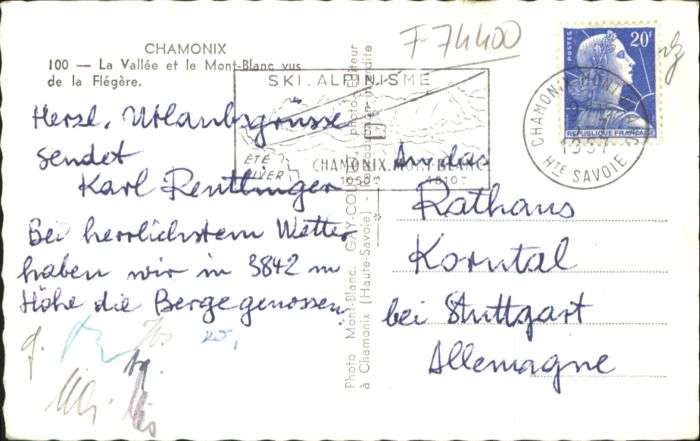 CHAMONIX
100 — La Vallée et le Mont-Blanc vus
de la Flégère.
F 74400
SKI. ALPINISME
ÉTÉ
HIVER
CHAMONIX. MONT-BLANC
CHAMONIX MONT
1957
HTE SAVOIE
POSTES
20F
REPUBLIQUE FRANÇAISE
Herzl. Urlaubsgrüsse
sendet
Karl Reutlinger
Bei herrlichstem Wetter
haben wir in 3842 m
Höhe die Berge genossen
Photo Mont-Blanc, GAY-COU
à Chamonix (Haute-Savoie)
An das
Rathaus
Korntal
bei Stuttgart
Allemagne